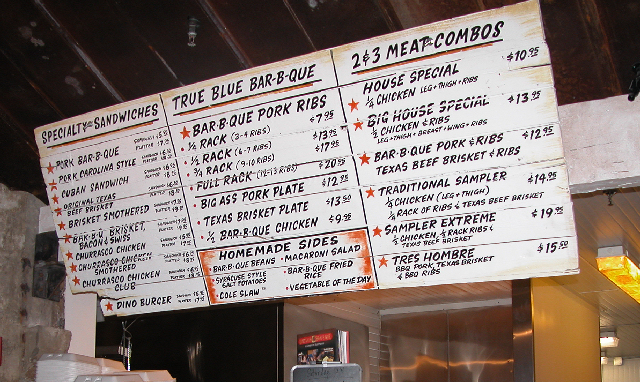 SPECIALTY SANDWICHES
PORK BAR-B-QUE
PORK CAROLINA STYLE
CUBAN SANDWICH
ORIGINAL TEXAS
BEEF BRISKET
BRISKET SMOTHERED
BAR-B-Q BRISKET,
BACON & SWISS
CHURRASCO CHICKEN
CHURRASCO CHICKEN
SMOTHERED
CHURRASCO CHICKEN
CLUB
DINO BURGER
TRUE BLUE BAR-B-QUE
BAR-B-QUE PORK RIBS
1/4 RACK (3-4 RIBS) $7.95
1/2 RACK (6-7 RIBS) $13.95
3/4 RACK (9-10 RIBS) $17.95
FULL RACK (12-13 RIBS) $20.95
BIG ASS PORK PLATE $12.95
TEXAS BRISKET PLATE $13.50
1/2 BAR-B-QUE CHICKEN $9.95
HOMEMADE SIDES
BAR-B-QUE BEANS
MACARONI SALAD
SYRACUSE STYLE
SALT POTATOES
BAR-B-QUE FRIED
RICE
COLE SLAW
VEGETABLE OF THE DAY
2 & 3 MEAT COMBOS
HOUSE SPECIAL $10.95
1/4 CHICKEN LEG + THIGH + RIBS
BIG HOUSE SPECIAL $13.95
1/2 CHICKEN & RIBS
LEG + THIGH + BREAST + WING + RIBS
BAR-B-QUE PORK & RIBS $12.95
TEXAS BEEF BRISKET & RIBS
TRADITIONAL SAMPLER $14.95
1/4 CHICKEN (LEG + THIGH)
1/4 RACK OF RIBS & TEXAS BEEF BRISKET
SAMPLER EXTREME $19.95
1/2 CHICKEN, 1/2 RACK RIBS &
TEXAS BEEF BRISKET
TRES HOMBRE $15.50
BBQ PORK, TEXAS BRISKET
& BBQ RIBS